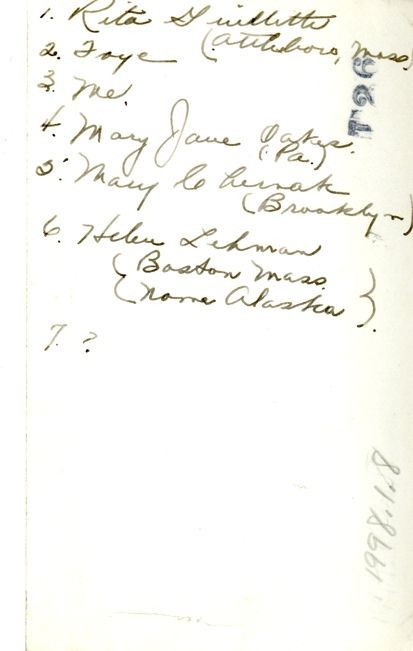 1. Rita
(Attleboro, Mass)
2. Faye
3. Me.
4. Mary Jane Oakes.
(Pa.)
5. Mary
(Brooklyn)
6. Helen Lehman
(Boston Mass.
(Nome Alaska).
7. ?
1998.1.8